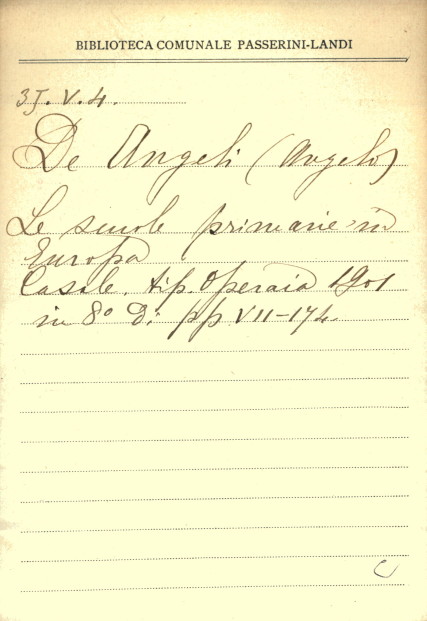 BIBLIOTECA COMUNALE PASSERINI-LANDI
3J.V.4.
De Angeli (Angelo)
Le scuole primarie in
Europa
Casale. tip. Operaia 1901
in 8° di pp VII-174.